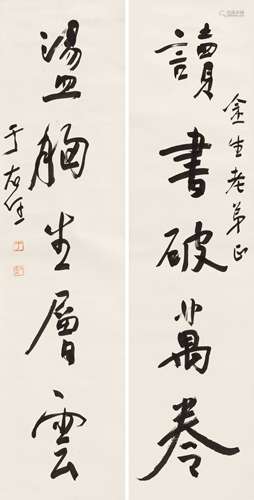 金生老弟正
讀書破萬卷
盪胸生層雲
于右任